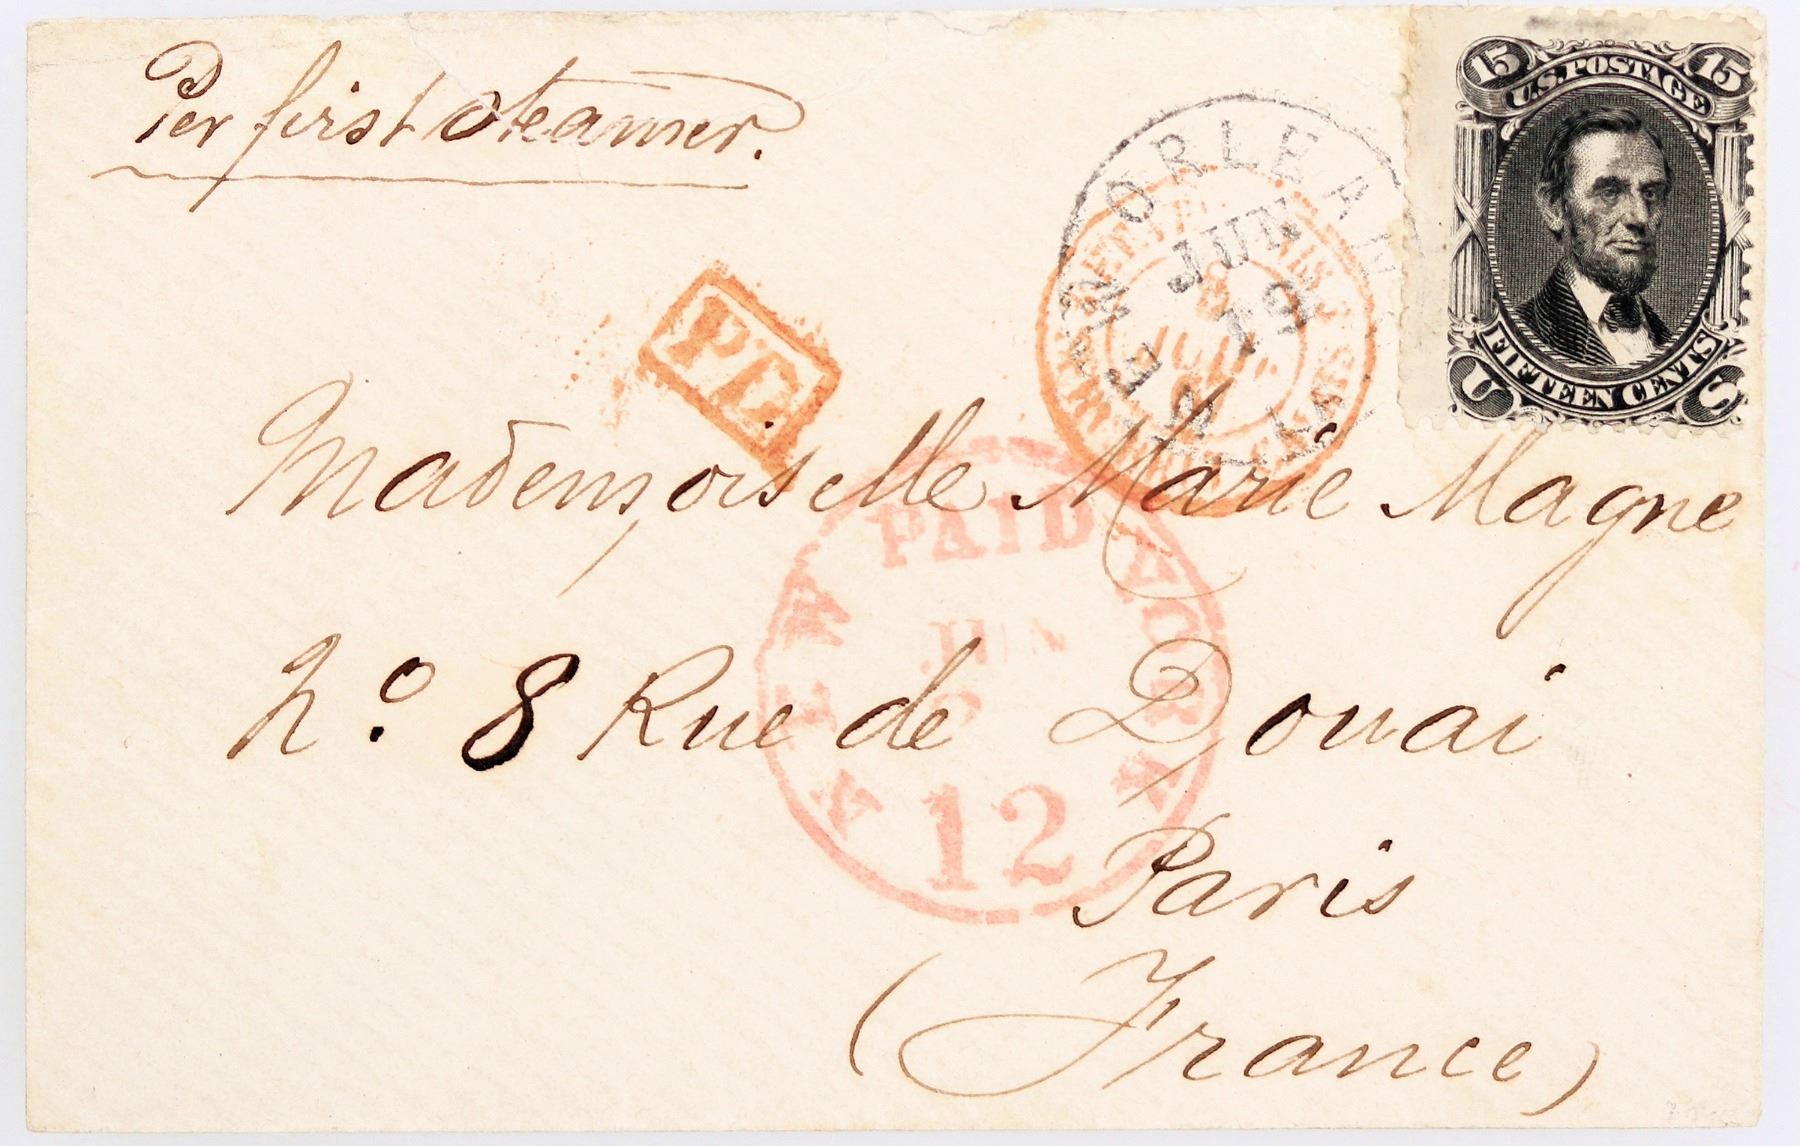 Per first steamer.
15 U.S. POSTAGE 15
FIFTEEN CENTS
U S
NEW ORLEA
JUN
19
P.D.
Mademoiselle Marie Magne
No. 8 Rue de Douai
Paris
(France)
NEW PAID YORK
JUN
12